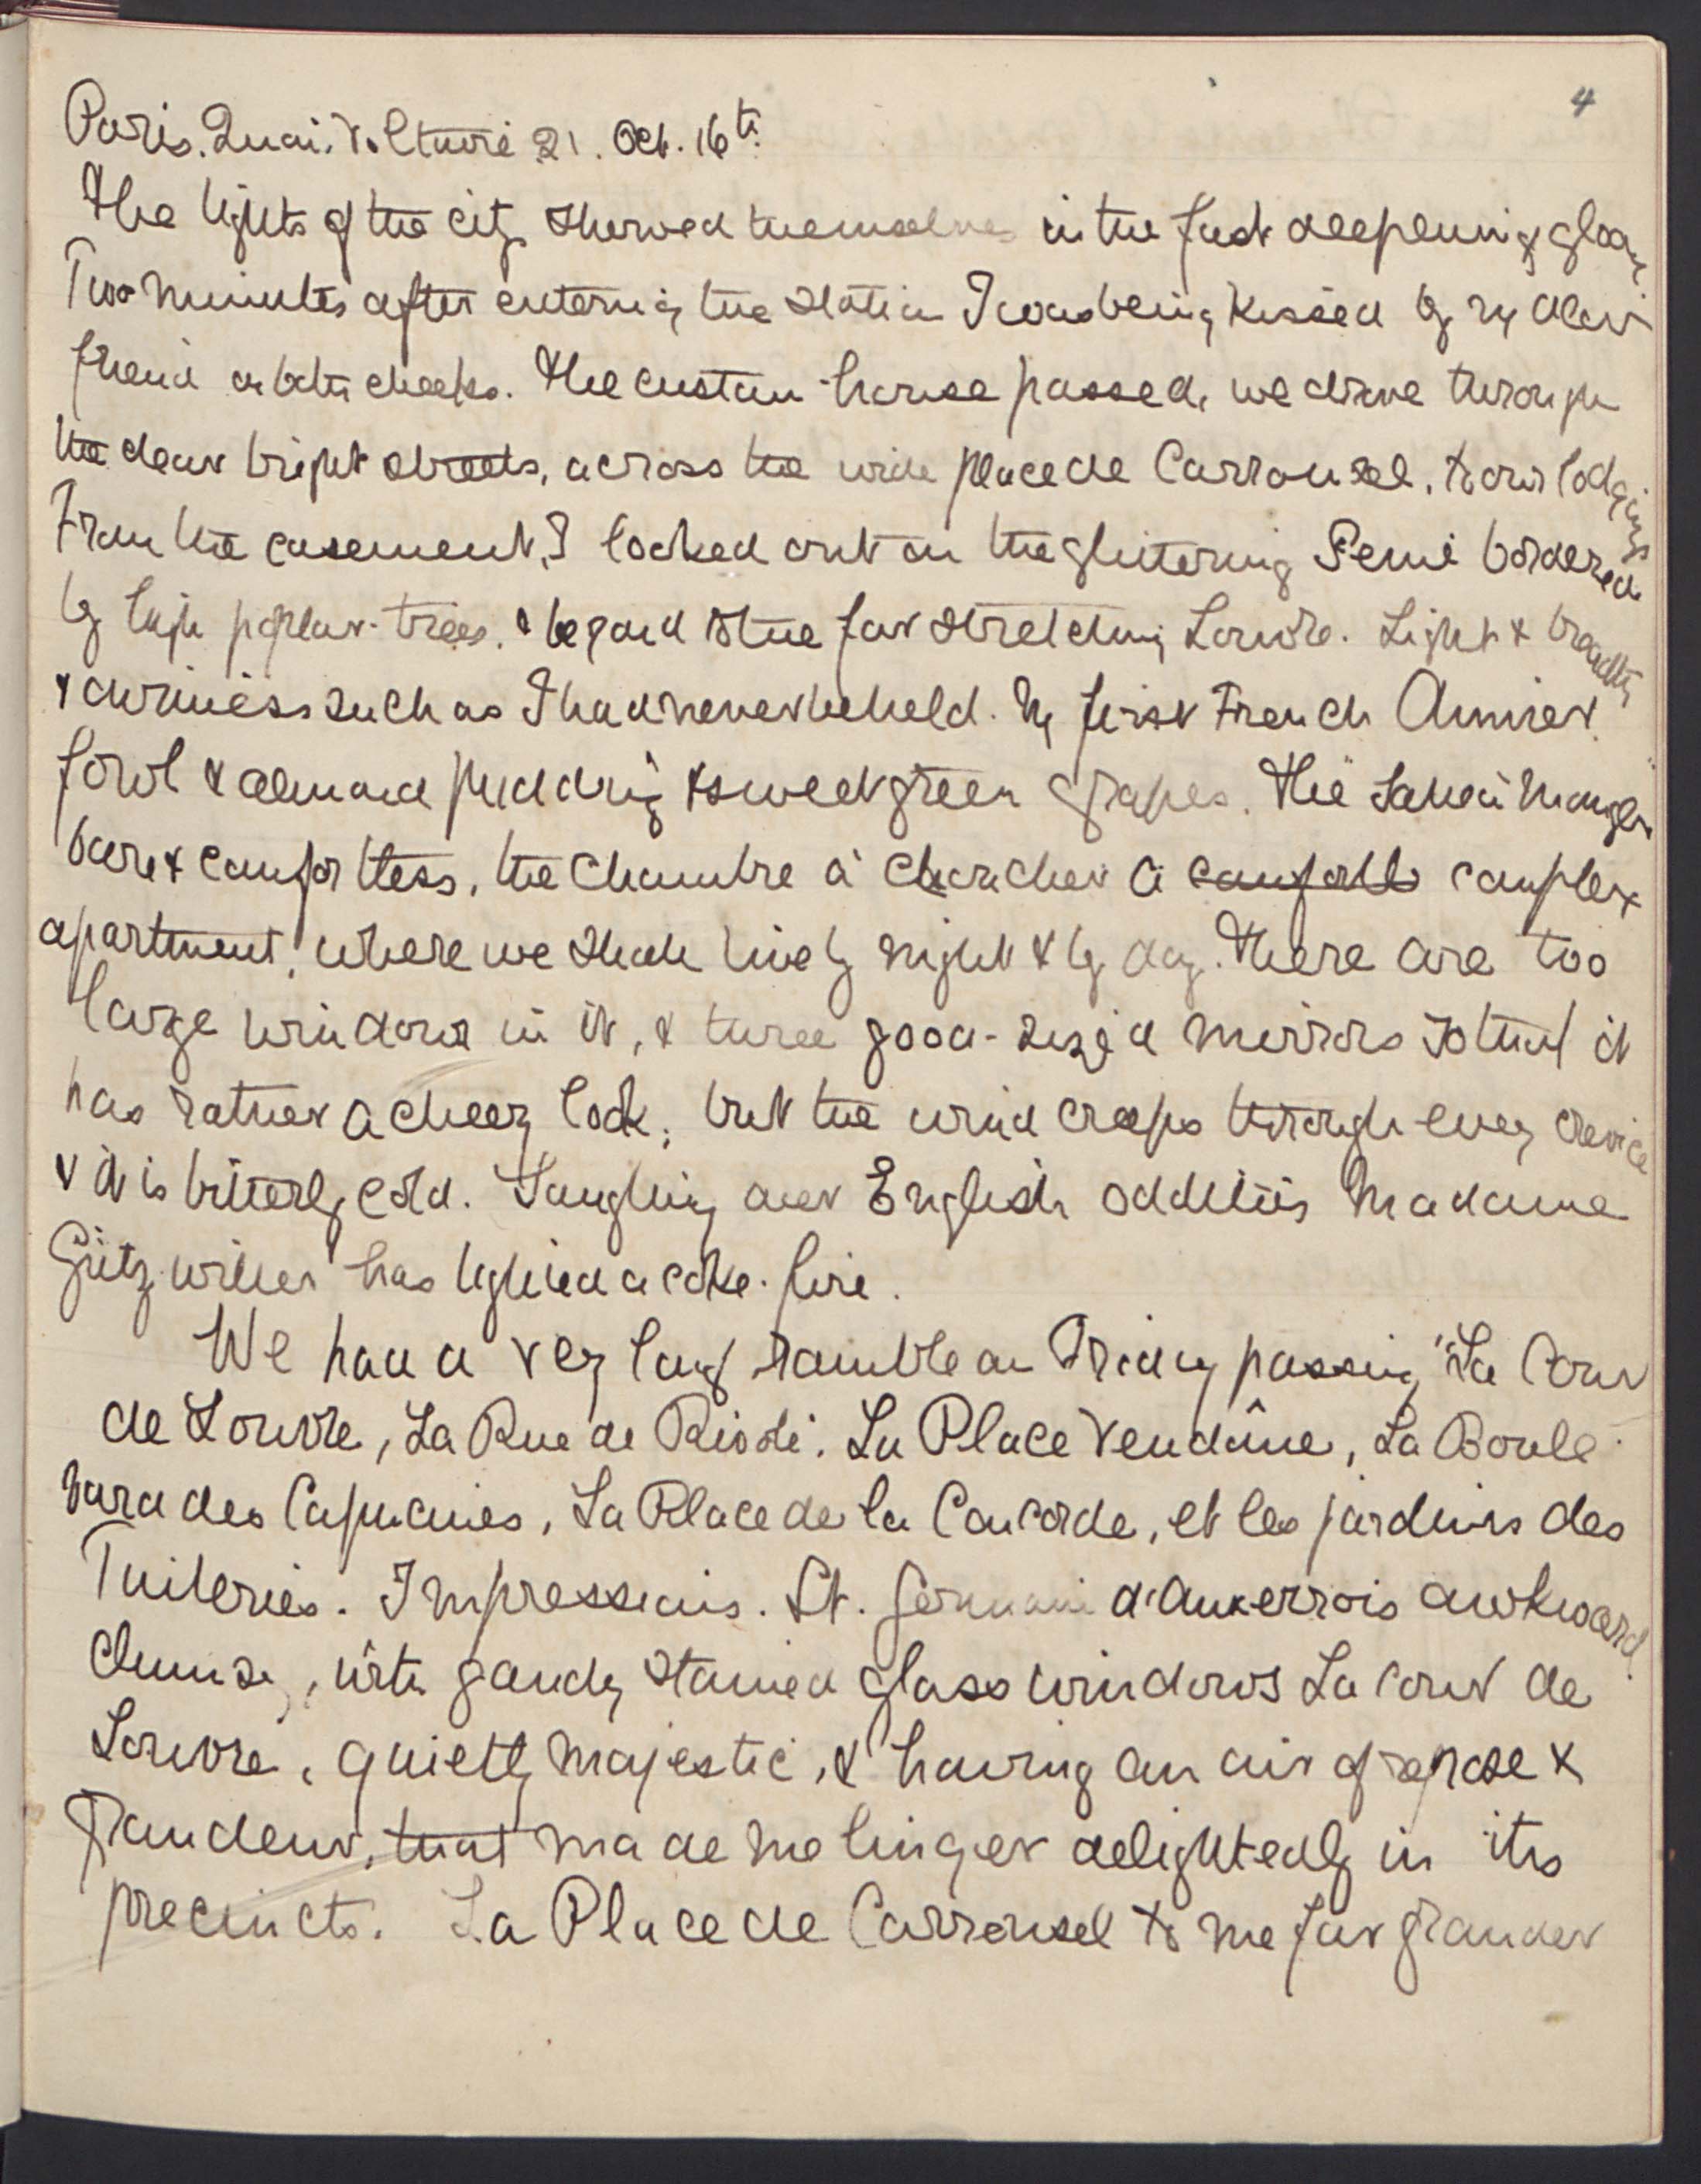 4
Paris. Quai. Voltaire 21. Oct. 16th
The lights of the city showed themselves in the fast deepening gloom
Two minutes after entering the station I was being kissed by my dear
friend on both cheeks. The custom-house passed, we drove through
the clear bright streets, across the wide place de Carrousel, to our lodgings
From the casement, I looked out on the glittering Seine bordered
by high poplar-trees, & beyond to the far stretching Louvre. Light & breadth
& airiness such as I had never beheld. My first French dinner.
fowl & almond pudding & sweet green grapes. The Salle à manger
bare & comfortless, the Chambre à coucher a comfortb complex
apartment, where we shall live by night & by day. There are too
large windows in it, & three good-sized mirrors so that it
has rather a cheery look, but the wind creeps through every crevice
& it is bitterly cold. Laughing over English oddities Madame
Gützwiller has lighted a coke-fire.
We had a very long ramble on Friday passing, "La Cour
de Louvre, La Rue de Rivoli, La Place Vendôme, La Boule
vard des Capucines, La Place de la Concorde, et les jardins des
Tuileries. Impressions. St. Germain d'Auxerrois awkward
clumsy, with gaudy stained glass windows La cour de
Louvre, quietly majestic, & having an air of repose &
grandeur, that made me linger delightedly in its
precincts. La Place de Carrousel to me far grander